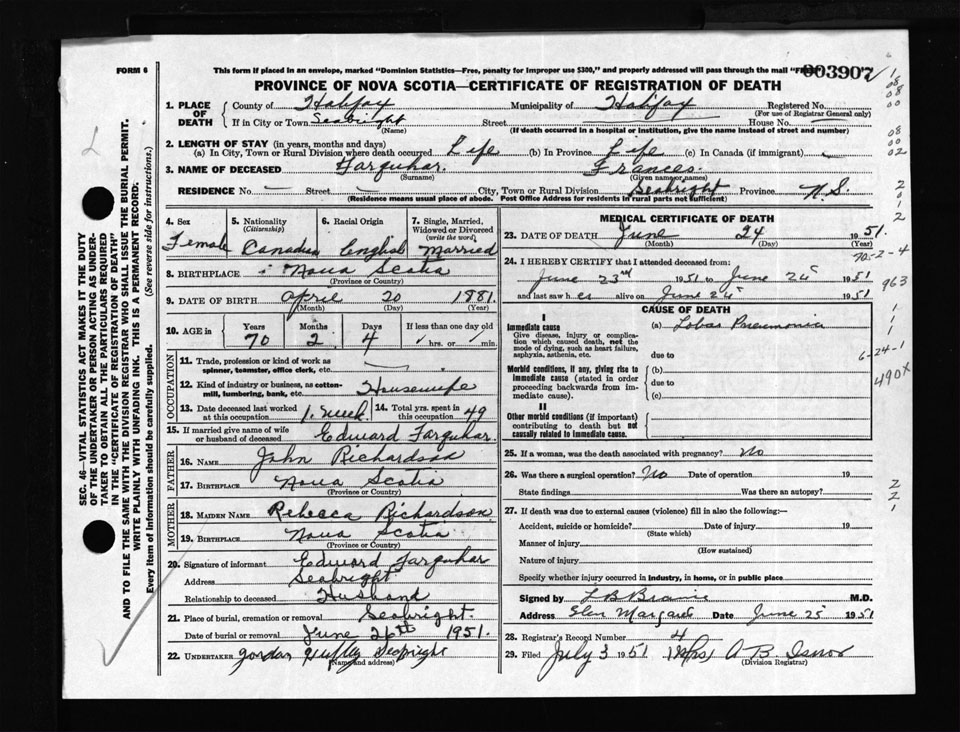 FORM 6
This form if placed in an envelope, marked "Dominion Statistics—Free, penalty for improper use $300," and properly addressed will pass through the mail "Fr
003907
PROVINCE OF NOVA SCOTIA—CERTIFICATE OF REGISTRATION OF DEATH
SEC. 46—VITAL STATISTICS ACT MAKES IT THE DUTY
OF THE UNDERTAKER OR PERSON ACTING AS UNDER-
TAKER TO OBTAIN ALL THE PARTICULARS REQUIRED
IN THE "CERTIFICATE OF REGISTRATION OF DEATH"
AND TO FILE THE SAME WITH THE DIVISION REGISTRAR WHO SHALL ISSUE THE BURIAL PERMIT.
WRITE PLAINLY WITH UNFADING INK. THIS IS A PERMANENT RECORD.
Every item of information should be carefully supplied. (See reverse side for instructions.)
1. PLACE OF DEATH
County of Halifax Municipality of Halifax Registered No.
(For use of Registrar General only)
If in City or Town Seabright Street House No.
(Name) (If death occurred in a hospital or institution, give the name instead of street and number)
2. LENGTH OF STAY (in years, months and days)
(a) In City, Town or Rural Division where death occurred Life (b) In Province Life (c) In Canada (if immigrant)
3. NAME OF DECEASED Farquhar. Frances.
(Surname) (Given name or names)
RESIDENCE No. Street City, Town or Rural Division Seabright Province N.S.
(Residence means usual place of abode. Post Office Address for residents in rural parts not Sufficient)
4. Sex Female
5. Nationality (Citizenship) Canadian
6. Racial Origin English
7. Single, Married, Widowed or Divorced (write the word) Married
8. BIRTHPLACE Nova Scotia
(Province or Country)
9. DATE OF BIRTH April 20 1881
(Month) (Day) (Year)
10. AGE in Years Months Days If less than one day old
70 2 4 hrs. or min.
OCCUPATION
11. Trade, profession or kind of work as
spinner, teamster, office clerk, etc.
12. Kind of industry or business, as cotton-
mill, lumbering, bank, etc. Housewife
13. Date deceased last worked
at this occupation 1. week
14. Total yrs. spent in
this occupation 49
15. If married give name of wife
or husband of deceased Edward Farquhar.
FATHER
16. NAME John Richardson
17. BIRTHPLACE Nova Scotia
(Province or Country)
MOTHER
18. MAIDEN NAME Rebecca Richardson
19. BIRTHPLACE Nova Scotia
(Province or Country)
20. Signature of informant Edward Farquhar
Address Seabright
Relationship to deceased Husband
21. Place of burial, cremation or removal Seabright.
Date of burial or removal June 26th 1951.
22. UNDERTAKER Gordon Seabright
(Name and address)
MEDICAL CERTIFICATE OF DEATH
23. DATE OF DEATH June 24 1951.
(Month) (Day) (Year)
24. I HEREBY CERTIFY that I attended deceased from:
70-2-4
June 23rd 1951 to June 24 1951
and last saw her alive on June 24 1951
963
CAUSE OF DEATH
I
Immediate cause
Give disease, injury or complication which caused death, not the mode of dying, such as heart failure, asphyxia, asthenia, etc.
(a) Lobar Pneumonia
due to
6-24-1
Morbid conditions, if any, giving rise to immediate cause (stated in order proceeding backwards from immediate cause).
(b)
due to
(c)
490X
II
Other morbid conditions (if important) contributing to death but not causally related to immediate cause.
25. If a woman, was the death associated with pregnancy? No
26. Was there a surgical operation? No Date of operation 19
State findings Was there an autopsy?
27. If death was due to external causes (violence) fill in also the following:—
Accident, suicide or homicide? Date of injury 19
(State which)
Manner of injury
(How sustained)
Nature of injury
Specify whether injury occurred in industry, in home, or in public place
Signed by M.D.
Address Glen Margaret Date June 25 1951
28. Registrar's Record Number 4
29. Filed July 3 1951 (Mrs) A B. Isnor
(Division Registrar)